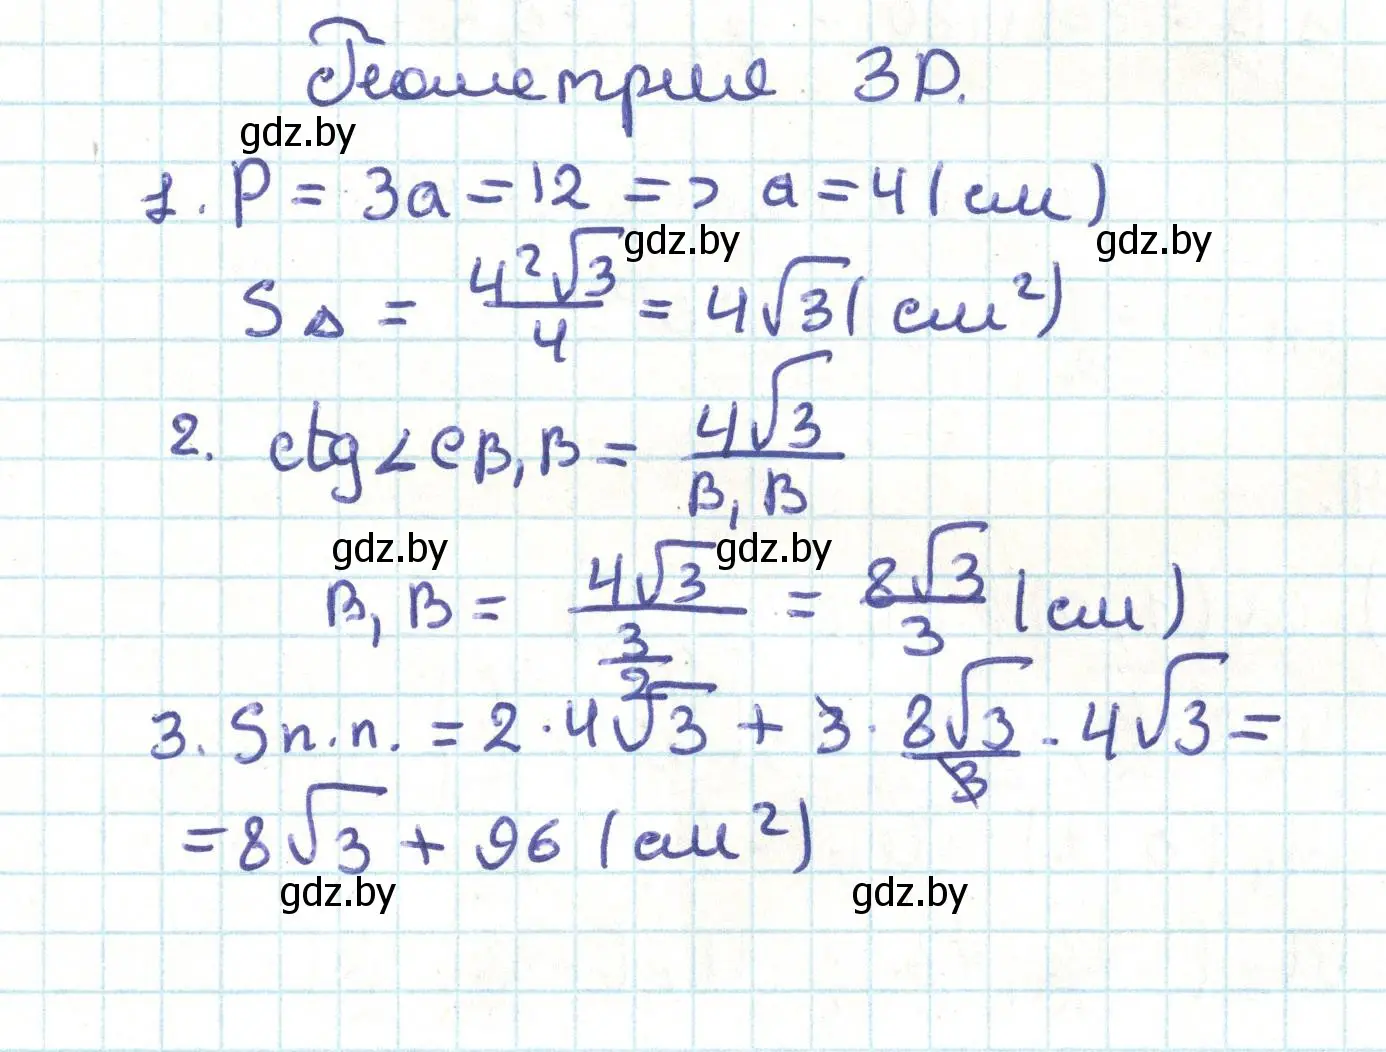 Геометрия 3D.
gdz.by
1. P = 3a = 12 => a = 4 (см)
gdz.by gdz.by
S△ = 4²√3/4 = 4√3 (см²)
2. ctg∠CB₁B = 4√3/B₁B
gdz.by gdz.by
B₁B = 4√3/(3/2) = 8√3/3 (см)
3. Sп.п. = 2·4√3 + 3·8√3/3·4√3 =
= 8√3 + 96 (см²)
gdz.by gdz.by